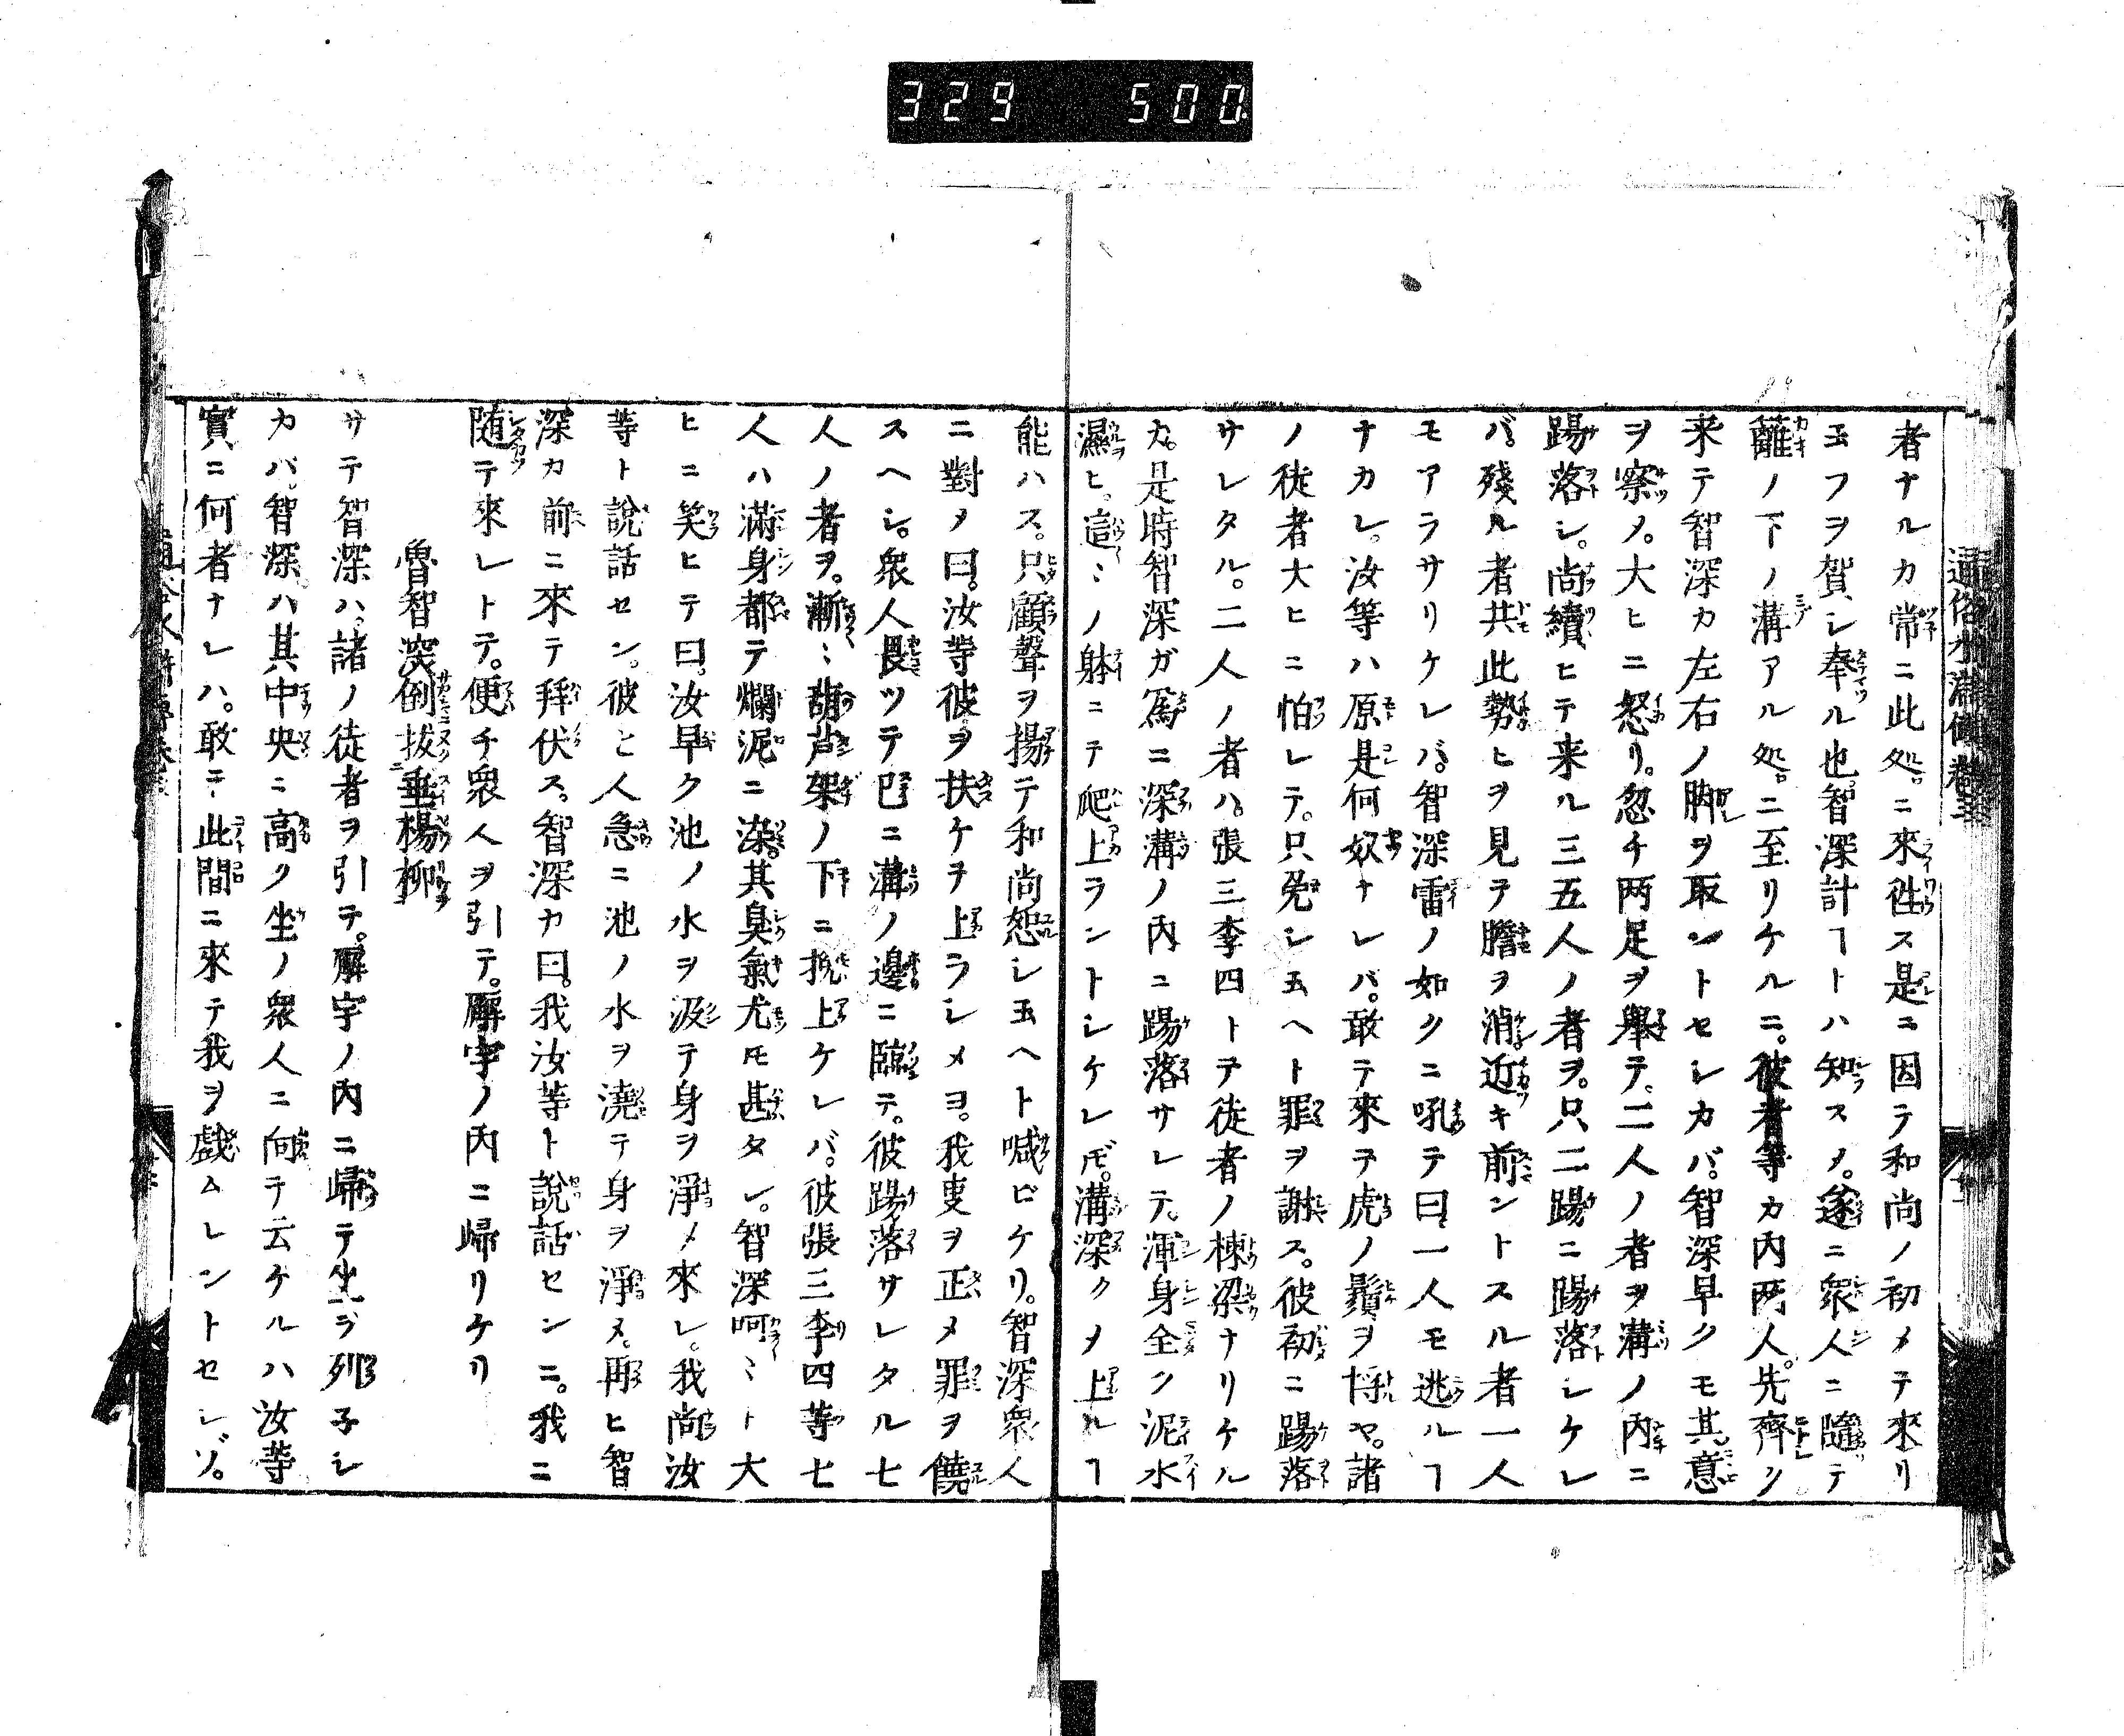 329 500
通俗水滸傳 卷三
者ナルカ常ニ此処ニ來徃ス是ニ因テ和尚ノ初メテ來リ
玉フヲ賀シ奉ル也智深計ヿトハ知スメ。遂ニ衆人ニ隨テ
籬ノ下ノ溝アル処ニ至リケルニ。彼者等カ内両人。先齊シ
来テ智深カ左右ノ脚ヲ取ントセシカバ。智深早クモ其意
ヲ察メ。大ヒニ怒リ。忽チ两足ヲ舉テ。二人ノ者ヲ溝ノ內ニ
踢落シ。尚續ヒテ来ル三五人ノ者ヲ。只二踢ニ踢落シケレ
バ。殘ル者共此勢ヒヲ見テ膽ヲ消近キ前ントスル者一人
モアラサリケレバ。智深雷ノ如クニ吼テ曰一人モ逃ルヿ
ナカレ。汝等ハ原是何奴ナレバ。敢テ來テ虎ノ鬚ヲ捋ヤ。諸
ノ徒者大ヒニ怕レテ。只免シ玉ヘト罪ヲ謝ス。彼初ニ踢落
サレタル。二人ノ者ハ。張三李四トテ徒者ノ棟梁ナリケル
カ。是時智深ガ爲ニ深溝ノ內ニ踢落サレテ。渾身全ク泥水
濕ヒ。這〻ノ躰ニテ爬上ラントシケレ𪜈。溝深クメ上ルヿ
能ハス。只顧聲ヲ揚テ和尚恕シ玉ヘト喊ビケリ。智深衆人
ニ對メ曰。汝等彼ヲ扶ケヲ上ラシメヨ。我叓ヲ正メ罪ヲ饒
スヘシ。衆人畏ツテ巴ニ溝ノ邊ニ臨テ。彼踢落サレタル七
人ノ者ヲ。漸〻葫芦架ノ下ニ挽上ケレバ。彼張三李四等七
人ハ滿身都テ爛泥ニ染。其臭氣尤𪜈甚タシ。智深呵〻ト大
ヒニ笑ヒテ曰。汝早ク池ノ水ヲ汲テ身ヲ淨メ來レ。我尚汝
等ト説話セン。彼と人急ニ池ノ水ヲ澆テ身ヲ淨メ。再ヒ智
深カ前ニ來テ拜伏ス。智深カ曰。我汝等ト說話センニ。我ニ
随テ來レトテ。便チ衆人ヲ引テ。廨宇ノ內ニ歸リケリ
魯智深倒拔垂楊柳
サテ智深ハ。諸ノ徒者ヲ引テ。廨宇ノ內ニ歸テ坐ヲ列子シ
カバ。智深ハ其中央ニ高ク坐ノ衆人ニ向テ云ケルハ汝等
實ニ何者ナレハ。敢テ此間ニ來テ我ヲ戲ムレントセシゾ。